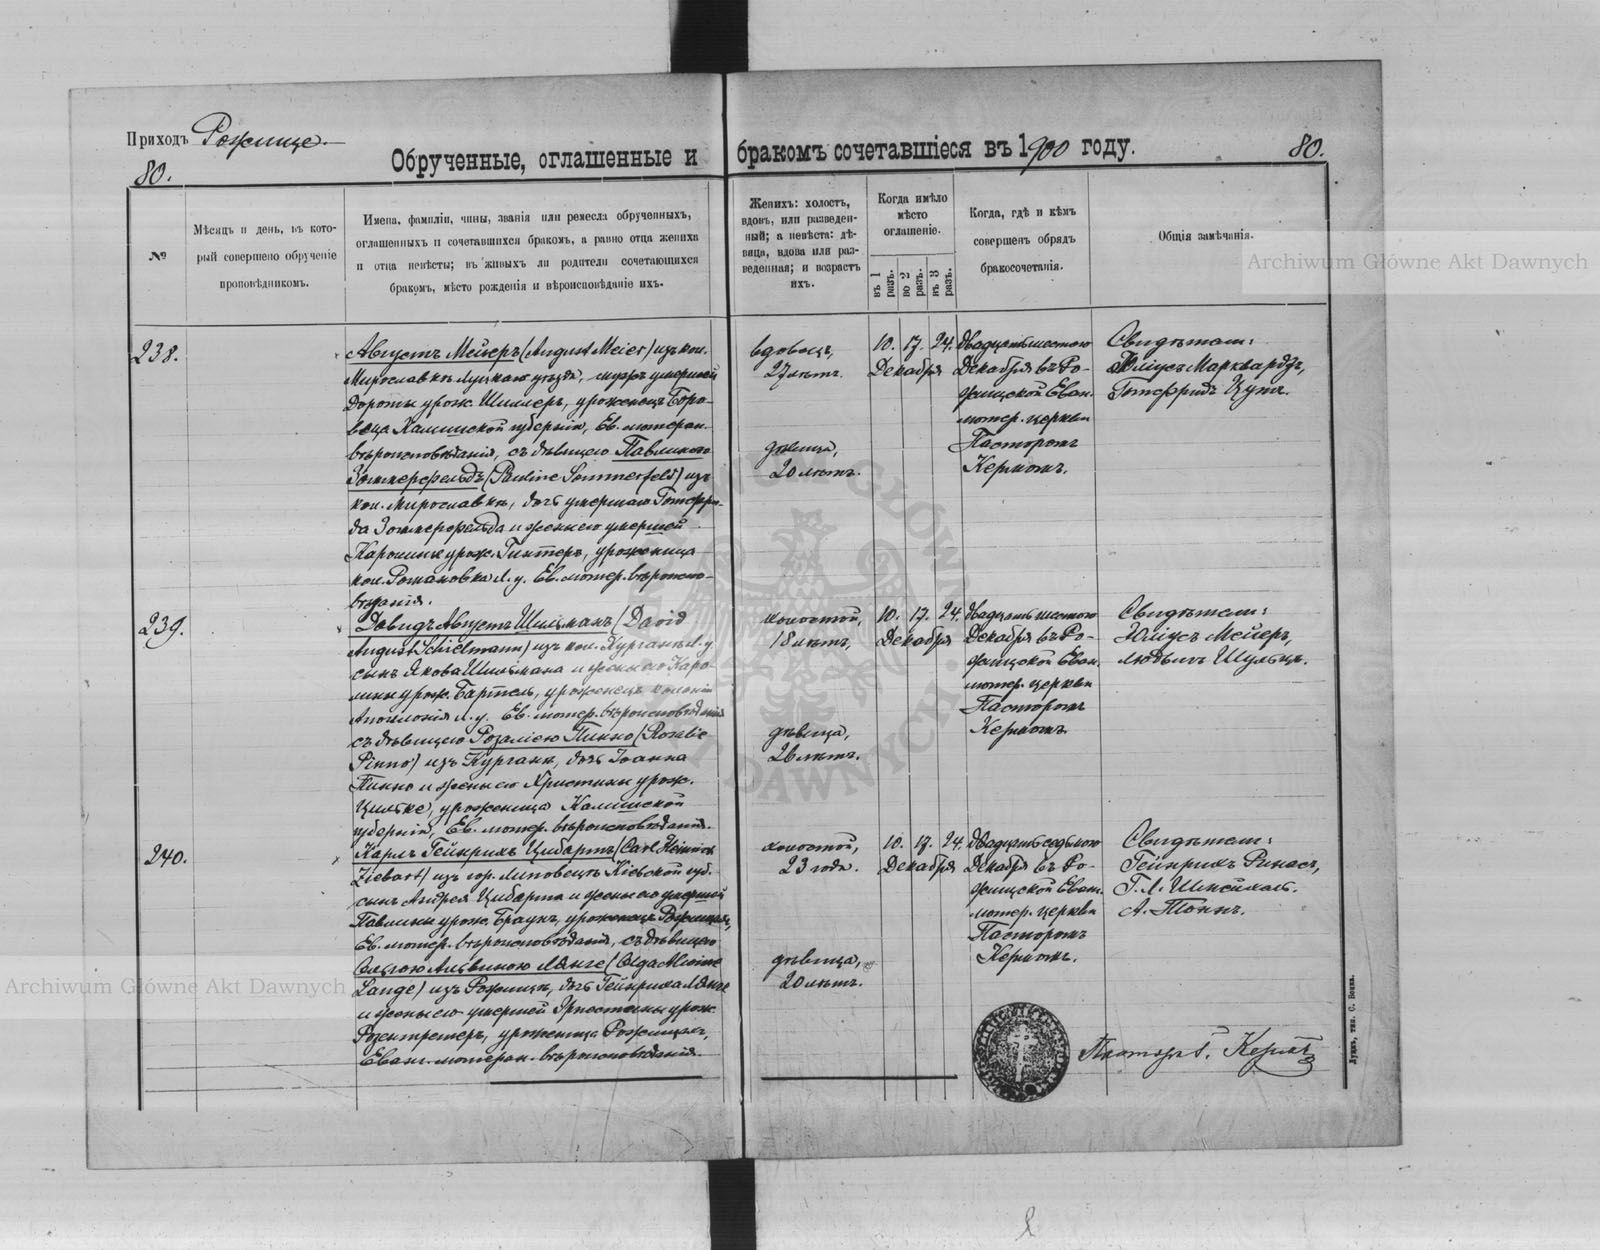 Приходъ Рожище.
80.
Обрученные, оглашенные и бракомъ сочетавшіеся въ 1900 году.
80.
№
Мѣсяцъ и день, въ кото-
рый совершено обрученіе
проповѣдникомъ.
Имена, фамиліи, чины, званія или ремесла обрученныхъ,
оглашенныхъ и сочетавшихся бракомъ, а равно отца жениха
и отца невѣсты; въ живыхъ ли родители сочетающихся
бракомъ, мѣсто рожденія и вѣроисповѣданіе ихъ.
Женихъ: холостъ,
вдовъ, или разведен-
ный; а невѣста: дѣ-
вица, вдова или раз-
веденная; и возрастъ
ихъ.
Когда имѣло
мѣсто
оглашеніе.
въ 1 разъ.
во 2 разъ.
въ 3 разъ.
Когда, гдѣ и кѣмъ
совершенъ обрядъ
бракосочетанія.
Общія замѣчанія.
Archiwum Główne Akt Dawnych
238.
Августъ Мейеръ (August Meier) изъ кол.
Мирославки Луцкаго уѣзда, мужъ умершей
Дороты урож. Шиллеръ, уроженецъ Боро-
веца Калишской губерніи, Ев. лютеран.
вѣроисповѣданія, съ дѣвицею Павлиною
Зоммерфельдъ (Pauline Sommerfeld) изъ
кол. Мирославки, дочь умершаго Готфри-
да Зоммерфельда и жены его умершей
Каролины урож. Гинтеръ, уроженица
кол. Романовка Л. у. Ев. лютер. вѣроиспо-
вѣданія.
вдовецъ,
27 лѣтъ.
дѣвица,
20 лѣтъ.
10. 17. 24.
Декабря
Двадцать шестого
Декабря въ Ро-
жищской Еван.
лютер. церкви
Пасторомъ
Кермомъ.
Свидѣтели:
Юлиусъ Марквардтъ,
Готфридъ Цупъ.
239.
Давидъ Августъ Шильманъ (David
August Schielmann) изъ кол. Курганъ Л. у.
сынъ Якова Шильмана и жены его Каро-
лины урож. Бартель, уроженецъ колоніи
Аполонія Л. у. Ев. лютер. вѣроисповѣданія
съ дѣвицею Розаліею Пинно (Rosalie
Pinno) изъ Курганъ, дочь Іоанна
Пинно и жены его Христины урож.
Цильке, уроженица Калишской
губерніи, Ев. лютер. вѣроисповѣданія.
холостой,
18 лѣтъ,
дѣвица,
26 лѣтъ.
10. 17. 24.
Декабря
Двадцать шестого
Декабря въ Ро-
жищской Еван.
лютер. церкви
Пасторомъ
Кермомъ.
Свидѣтели:
Юліусъ Мейеръ,
Людвигъ Шульцъ.
240.
Карлъ Гейнрихъ Цибартъ (Carl Heinrich
Ziebart) изъ гор. Липовецъ Кіевской губ.
сынъ Андрея Цибарта и жены его умершей
Павлины урож. Браунъ, уроженецъ Рожищъ,
Ев. лютер. вѣроисповѣданія, съ дѣвицею
Ольгою Альвиною Лянге (Olga Alwine
Lange) изъ Рожищъ, дочь Гейнриха Лянге
и жены его умершей Эрнестины урож.
Розентретеръ, уроженица Рожищъ,
Еванг. лютеран. вѣроисповѣданія.
холостой,
23 года.
дѣвица,
20 лѣтъ.
10. 17. 24.
Декабря
Двадцать седьмого
Декабря въ Ро-
жищской Еван.
лютер. церкви
Пасторомъ
Кермомъ.
Свидѣтели:
Гейнрихъ Ринасъ,
А. Тонъ.
Archiwum Główne Akt Dawnych
Пасторъ Кермъ
Луцкъ, тип. С. Бокка.